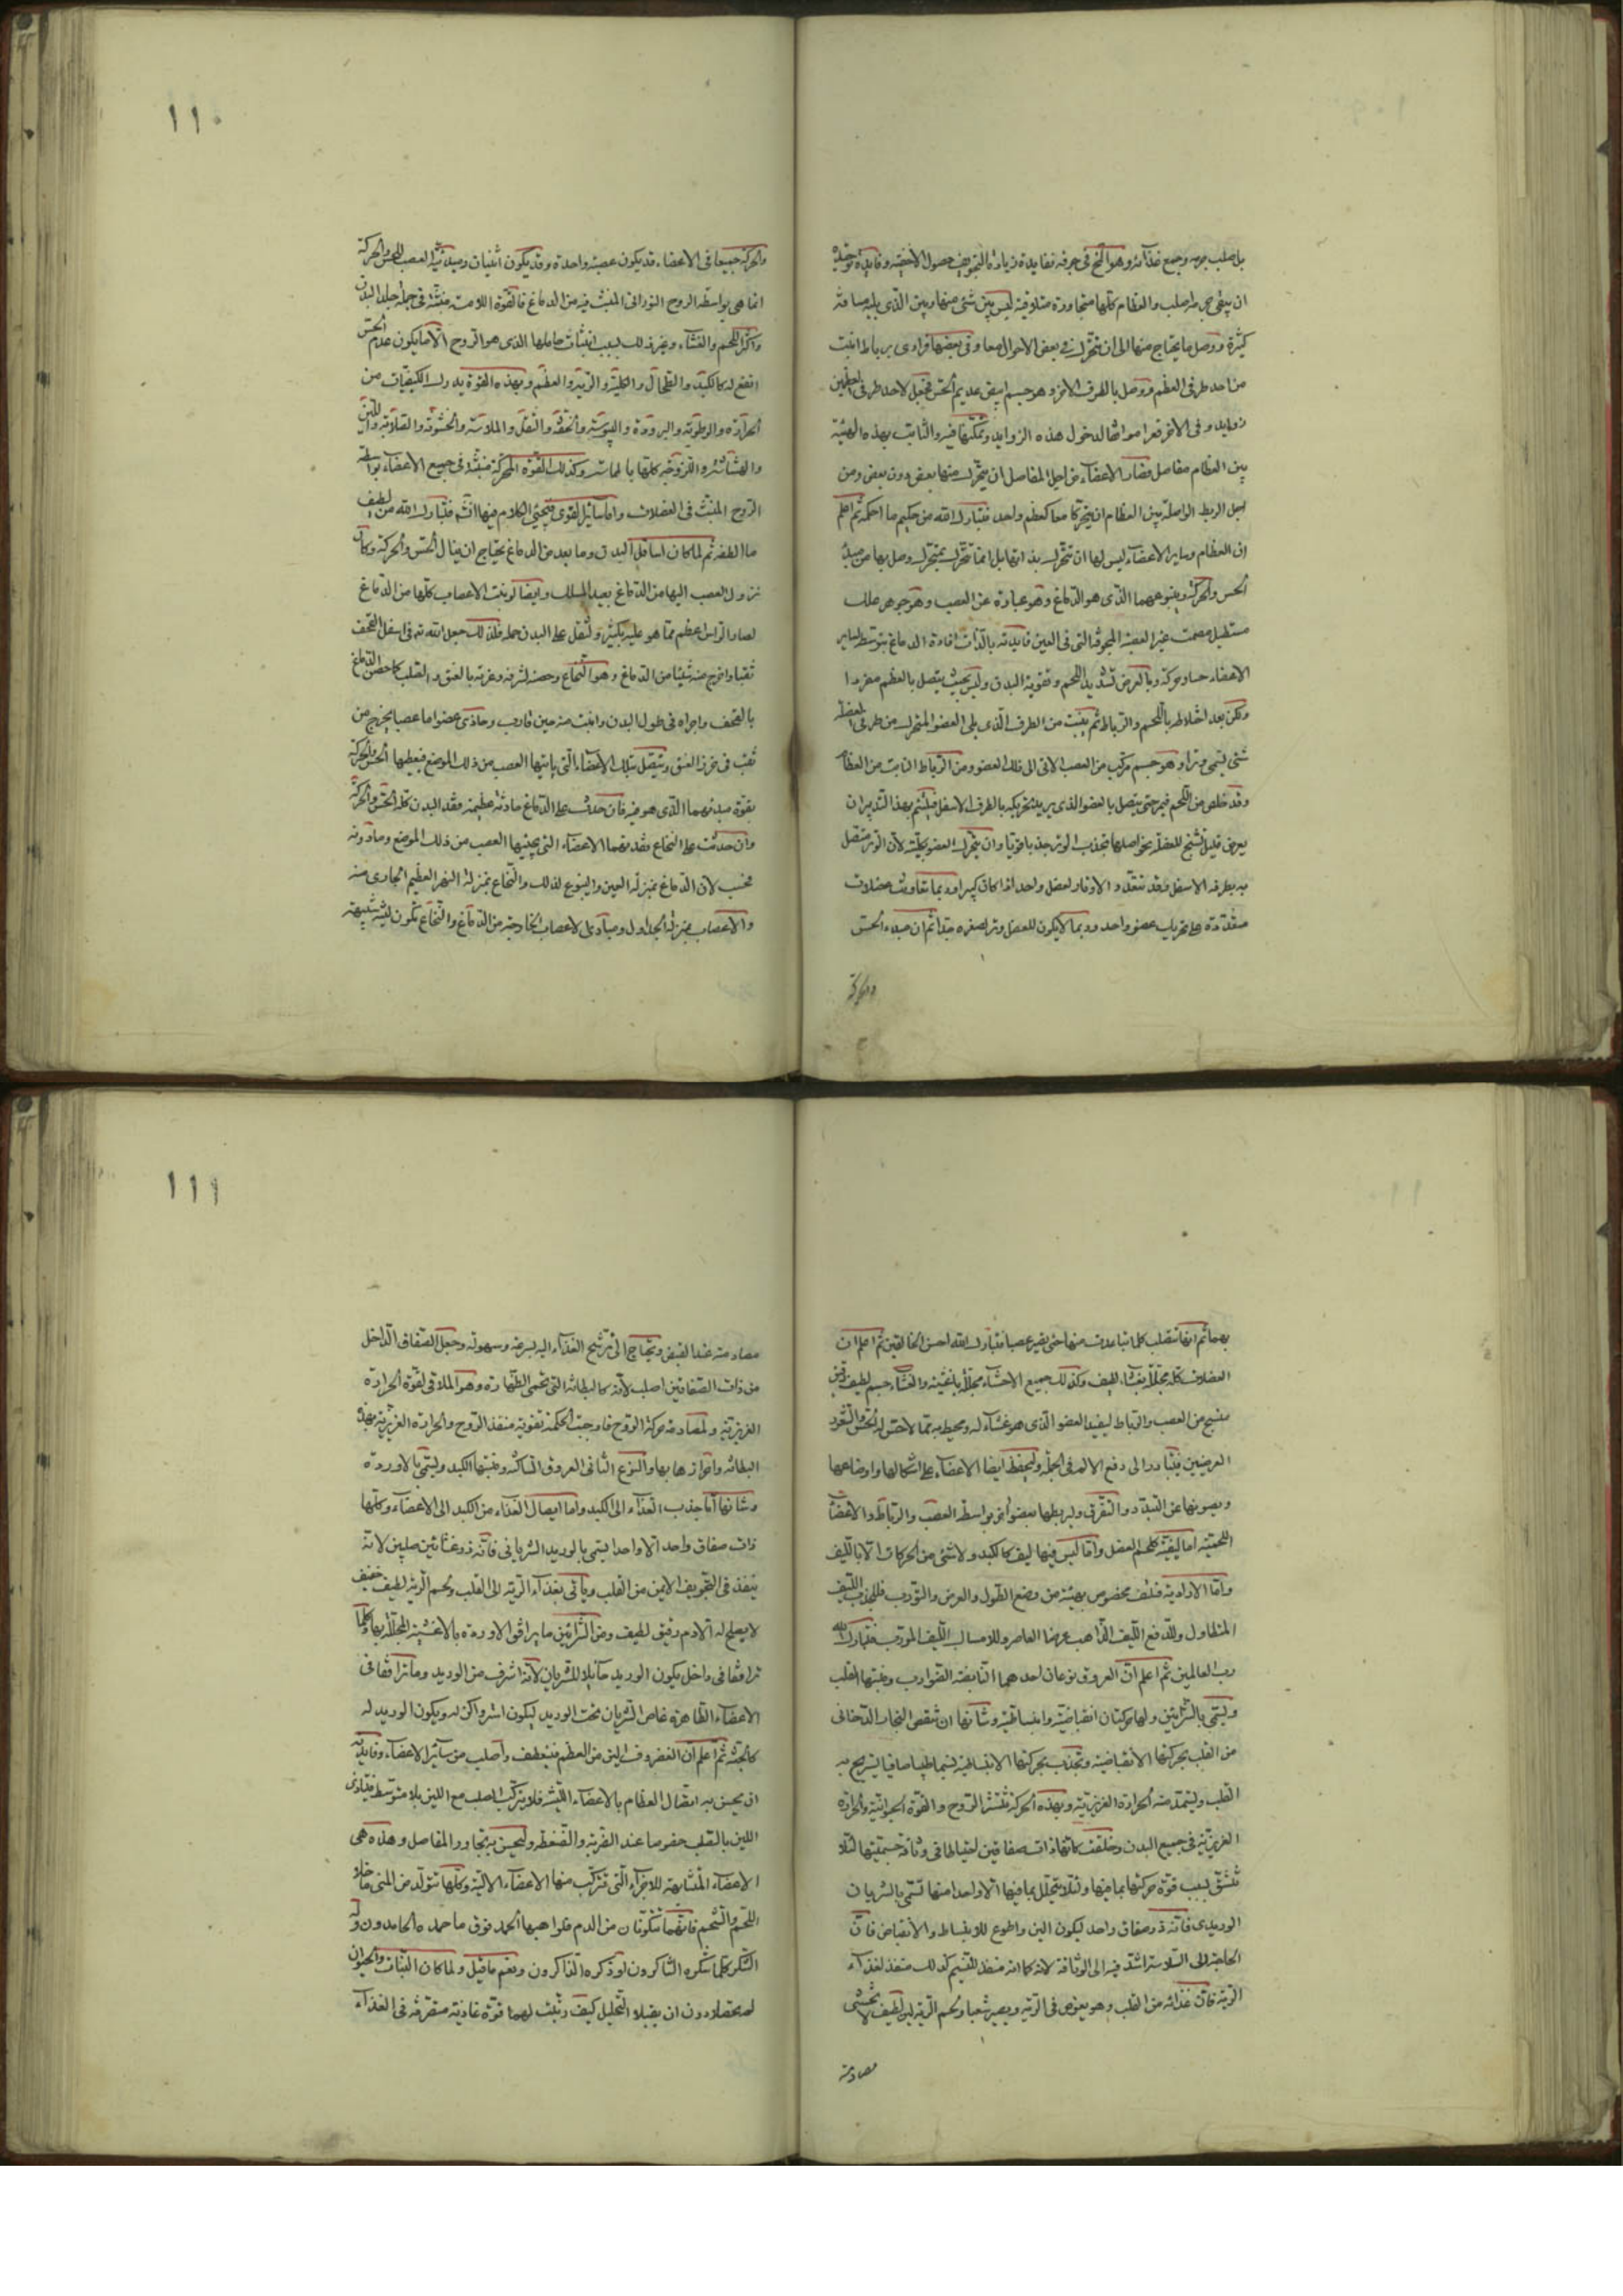 بل صلب جرمه وجمع غذائه وهو المخ في جوفه ففايدة زيادة التجويف حصول الاخفية وفايدة توحيده
ان يبقى جرمه اصلب والعظام كلها متجاورة متلاقية ليس بين شئ منها وبين الذي يليه مسافة
كثيرة ووصل ما يحتاج منها الى ان تتحرك في بعض الاحوال معا وفي بعضها فرادى برباط انبت
من احد طرفي العظم ووصل بالطرف الاخر وهو جسم ابيض عديم الحس فجعل لاحد طرفي العظمين
زوايد وفي الاخر نقرا موافقا لدخول هذه الزوايد وتمكنها فيه والتأمت بهذه الهيئة
بين العظام مفاصل فصار الاعضاء من اجل المفاصل ان يتحرك منها بعض دون بعض ومن
اجل الربط الواصلة بين العظام ان يتحركا معا كعظم واحد فتبارك الله من حكيم ما احكمه ثم اعلم
ان العظام وساير الاعضاء ليس لها ان تتحرك بذاتها بل انما تتحرك بمتحرك وصل بها من مبدأ
الحس والحركة وينبوعهما الذي هو الدماغ وهو عبارة عن العصب وهو جوهر علك
مستطيل مصمت غير العصبة المجوفة التي في العين فايدته بالذات افادة الدماغ بتوسطه لساير
الاعضاء حسا وحركة وبالعرض تشديد اللحم وتقوية البدن وليس بحيث يتصل بالعظم مفردا
ولكن بعد اختلاطه باللحم والرباط ثم ينبت من الطرف الذي يلي العضو المتحرك من طرفي العضلة
شئ يسمى وترا وهو جسم مركب من العصب الاتي الى ذلك العضو ومن الرباط النابت من العظام
وقد خلص من اللحم فيمر حتى يتصل بالعضو الذي يريد تحريكه بالطرف الاسفل فيلتئم بهذا التدبير ان
يعرض قليل تشنج للعضلة نحو اصلها فتجذب الوتر جذبا قويا وان يتحرك العضو بكليته لان الوتر متصل
به بطرفه الاسفل وقد تتعدد الاوتار لعضل واحد اذا كان كبيرا وربما تعاونت عضلات
متعددة على تحريك عضو واحد وربما لا يكون للعضل وتر لصغره جدا ثم ان مبدأ الحس
والحركة
١١٠
والحركة جميعا في الاعضاء قد يكون عصبة واحدة وقد يكون اثنتان ومبدئية العصب للحس والحركة
انما هي بواسطة الروح النوراني المنبث فيه من الدماغ فالقوة اللامسة منبثة في جملة جلد البدن
واكثر اللحم والغشاء وغير ذلك بسبب انبثاث حاملها الذي هو الروح الا ما يكون عدم الحس
انفع له كالكبد والطحال والكلية والرية والعظم وبهذه القوة يدرك الكيفيات من
الحرارة والرطوبة والبرودة واليبوسة والخفة والثقل والملاسة والخشونة والصلابة واللين
والهشاشة واللزوجة كلها بالمماسة وكذلك القوة المحركة منبثة في جميع الاعضاء بواسطة
الروح المنبث في العضلات واما سائر القوى فيجئ الكلام فيها انشه فتبارك الله من لطيف
ما الطفه ثم لما كان اسافل البدن وما بعد من الدماغ يحتاج ان ينال الحس والحركة وكان
نزول العصب اليها من الدماغ بعيد المسلك وايضا لو نبت الاعصاب كلها من الدماغ
لصار الراس اعظم مما هو عليه بكثير وثقل على البدن حمله فلذلك جعل الله ته في اسفل القحف
ثقبا واخرج منه شيئا من الدماغ وهو النخاع وحصنه لشرفه وعزته بالعنق والصلب كما حصن الدماغ
بالقحف واجراه في طول البدن وانبت منه حين قارب وحاذى عضوا ما عصبا يخرج من
ثقب في خرز العنق ويتصل بتلك الاعضاء التي ياتيها العصب من ذلك الموضع فيعطيها الحس والحركة
بقوة مبدئهما الذي هو فيه فان حدث على الدماغ حادثة عظيمة فقد البدن كله الحس والحركة
وان حدثت على النخاع فقدتهما الاعضاء التي يجيئها العصب من ذلك الموضع وما دونه
فحسب لان الدماغ بمنزلة العين والينبوع لذلك والنخاع بمنزلة النهر العظيم الجاري منه
والاعصاب بمنزلة الجداول ومبادئ الاعصاب الخارجة من الدماغ والنخاع تكون لينة شبيهة
بهما ثم انها تصلب كلما تباعدت منها حتى يصير عصبا فتبارك الله احسن الخالقين ثم اعلم ان
العضلات كله مجلل بغشاء لطيف وكذلك جميع الاحشاء مجلل باغشية والغشاء جسم لطيف رقيق
منتسج من العصب والرباط ليفيد العضو الذي هو غشاء له ومحيط به مما لا حس له الحس والشعور
العرضيين فيتبادر الى دفع الالم في الجملة وليحفظ ايضا الاعضاء على اشكالها واوضاعها
ويصونها عن التبدد والتفرق وليربطها بعضو اخر بواسطة العصب والرباط والاعضاء
اللحمية اما ليفية كلحم العضل واما ليس فيها ليف كالكبد ولا شئ من الحركات الا بالليف
واما الارادية فلليف مخصوص بهيئة من وضع الطول والعرض والتورب فللجذب الليف
المتطاول وللدفع الليف الذاهب عرضا العاصر وللامساك الليف المورب فتبارك الله
رب العالمين ثم اعلم ان العروق نوعان احدهما النابضة الضوارب ومنبتها القلب
ويسمى بالشرايين ولها حركتان انقباضية وانبساطية وشانها ان تنفض البخار الدخاني
من القلب بحركتها الانقباضية وتجذب بحركتها الانبساطية نسيما طيبا صافيا يستريح به
القلب ويستمد منه الحرارة الغريزية وبهذه الحركة تنتشر الروح والقوة الحيوانية والحرارة
الغريزية في جميع البدن وخلقت كلها ذات صفاقين احتياطا في وثاقة جسميتها لئلا
تنشق بسبب قوة حركتها بما فيها ولئلا يتحلل ما فيها الا واحدا منها تسمى بالشريان
الوريدي فانه ذو صفاق واحد ليكون الين واطوع للانبساط والانقباض فان
الحاجة الى السلاسة اشد فيه الى الوثاقة لانه كما انه منفذ للنسيم كذلك منفذ لغذاء
الرية فان غذائه من القلب وهو يغوص في الرية ويصير شعبا ولحم الرية لين لطيف لا يخشى
مصادمة
١١١
مصادمته عند القبض ويحتاج الى ترشيح الغذاء اليه بسرعة وسهولة وجعل الصفاق الداخل
من ذات الصفاقين اصلب لانه كالبطانة التي تحمى الظهارة وهو الملاقي لقوة الحرارة
الغريزية ولمصادمة حركة الروح فاوجبت الحكمة تقوية منفذ الروح والحرارة الغريزية بهذه
البطانة واحرازها بها والنوع الثاني العروق الساكنة ومنبتها الكبد ويسمى بالاوردة
وشانها اما جذب الغذاء الى الكبد واما ايصال الغذاء من الكبد الى الاعضاء وكلها
ذات صفاق واحد الا واحدا يسمى بالوريد الشرياني فانه ذو غشائين صلبين لانه
ينفذ في التجويف الايمن من القلب وياتي بغذاء الرية الى القلب ولحم الرية لطيف خفيف
لا يصلح له الا دم رقيق لطيف ومن الشرايين ما يرافق الاوردة بالاغشية المجللة بها وكلما
ترافقا في داخل يكون الوريد حاملا للشريان لانه اشرف من الوريد وما ترافقا في
الاعضاء الظاهرة غاص الشريان تحت الوريد ليكون استر واكن له ويكون الوريد له
كالجنة ثم اعلم ان الغضروف الين من العظم فينعطف واصلب من سائر الاعضاء وفايدته
ان يحسن به اتصال العظام بالاعضاء اللينة فلا يتركب الصلب مع اللين بلا متوسط فيتاذى
اللين بالصلب خصوصا عند الضربة والضغطة وليحسن به تجاور المفاصل وهذه هي
الاعضاء المتشابهة للاجزاء التي تتركب منها الاعضاء الالية وكلها تتولد من المني ما خلا
اللحم والشحم فانهما تتكونان من الدم فلواهبها الحمد فوق ما حمده الحامدون وله
الشكر كما شكره الشاكرون او ذكره الذاكرون ونعم ما قيل ولما كان النبات والحيوان
لم يحصلا دون ان يقبلا التحليل كيف رتبت لهما قوة غاذية متصرفة في الغذاء